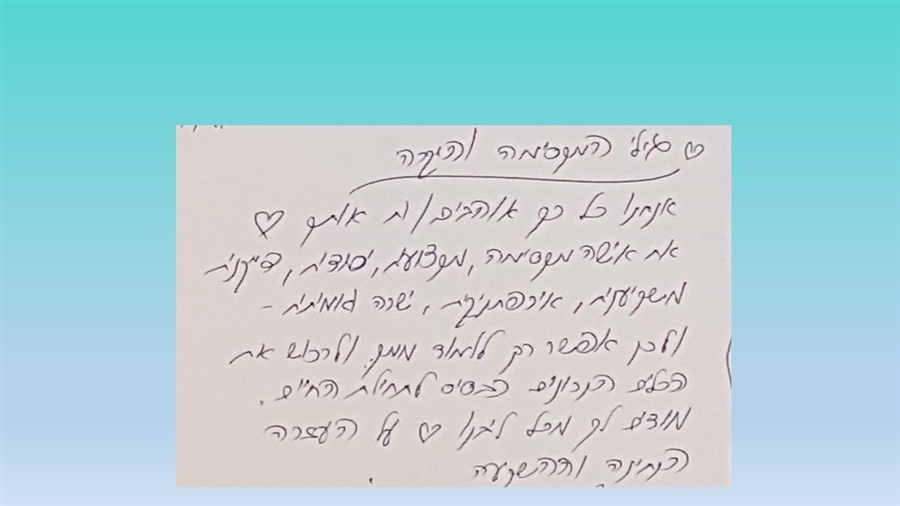 ♡ סגילי המקסימה והיקרה
אנחנו כל כך אוהבים/ות אותך ♡
את אישה מקסימה, מקצועית, יסודית, דייקנית
משקיענית, אירפתניקית, ישרה גומיתית -
ולכן אפשר רק ללמוד ממך ולרכוש את
הכלים הנכונים כבסיס לתחילת החיים.
מודים לך מכל ליבנו ♡ על העזרה
הנתינה וההשקעה